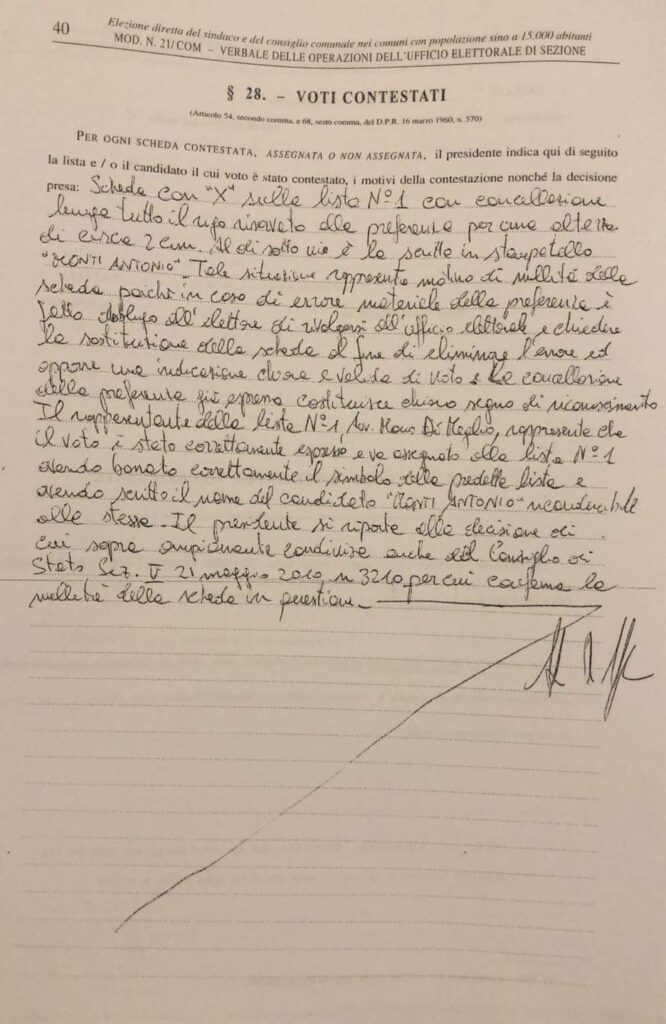 40
Elezione diretta del sindaco e del consiglio comunale nei comuni con popolazione sino a 15.000 abitanti
MOD. N. 21/COM – VERBALE DELLE OPERAZIONI DELL'UFFICIO ELETTORALE DI SEZIONE
§ 28. – VOTI CONTESTATI
(Articolo 54, secondo comma, e 68, sesto comma, del D.P.R. 16 marzo 1960, n. 570)
PER OGNI SCHEDA CONTESTATA, ASSEGNATA O NON ASSEGNATA, il presidente indica qui di seguito
la lista e / o il candidato il cui voto è stato contestato, i motivi della contestazione nonché la decisione
presa: Scheda con "X" sulla lista N°1 con cancellazione
lungo tutto il rigo riservato alla preferenza per una altezza
di circa 2 cm. Al di sotto vi è la scritta in stampatello
"MONTI ANTONIO". Tale situazione rappresenta motivo di nullità della
scheda poiché in caso di errore materiale della preferenza è
fatto obbligo all'elettore di rivolgersi all'ufficio elettorale e chiedere
la sostituzione della scheda al fine di eliminare l'errore ed
apporre una indicazione chiara e valida di voto e la cancellazione
della preferenza già espressa costituisce chiaro segno di riconoscimento
Il rappresentante della lista N°1 Avv. Di Meglio, rappresenta che
il voto è stato correttamente espresso e va assegnato alla lista N°1
avendo barrato correttamente il simbolo della predetta lista e
avendo scritto il nome del candidato "MONTI ANTONIO" riconducibile
alla stessa. Il presidente si riporta alla decisione di
cui sopra ampiamente condivisa anche dal Consiglio di
Stato Sez. V 21 maggio 2010, n 3210 per cui conferma la
nullità della scheda in questione.